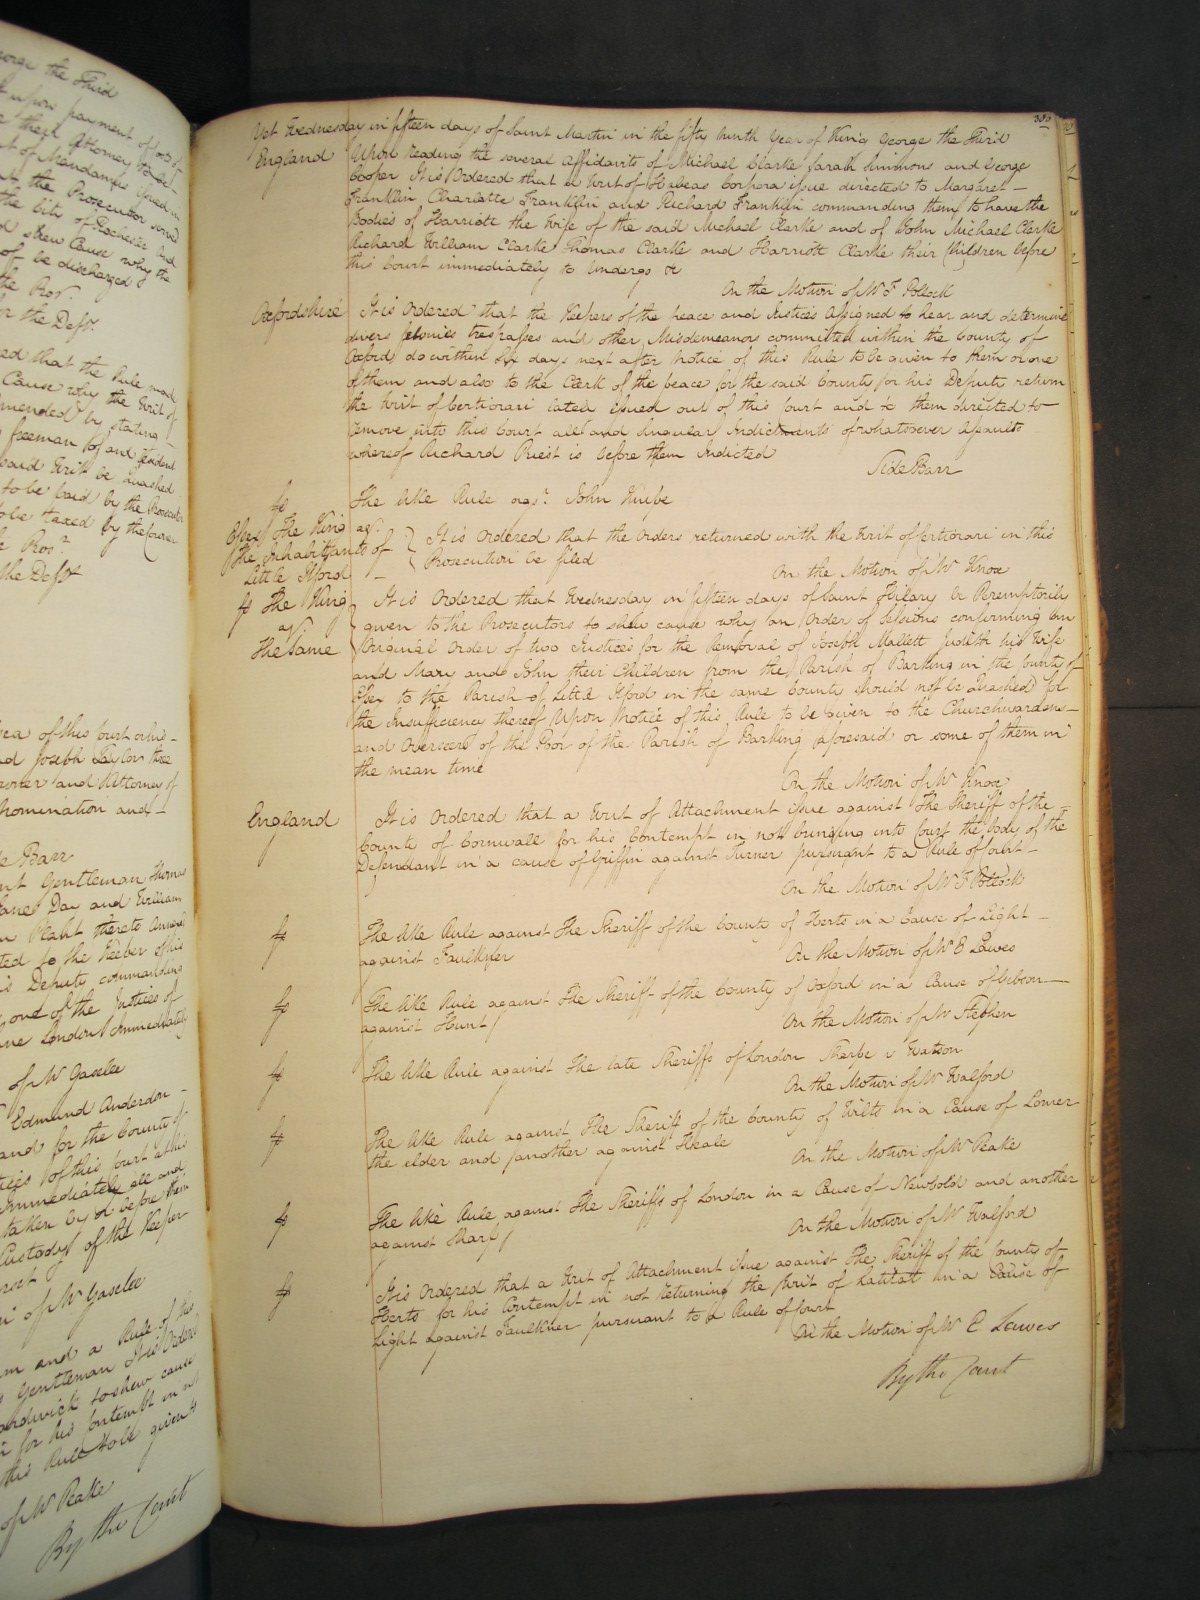 orge the Third
upon payment of
their Attorney to be
of Mandamus
the Prosecutor served
the City of Rochester and
shew Cause why the
of be discharged
the Pros.r
the Def.t
ed that the Rule made
Cause why the Writ of
amended by stating
freeman of and resident
said Writ be quashed
to be paid by the Prosecutor
to be taxed by the
Pros.r
the Def.t
of this Court
and Joseph Taylor three
and Attorney of
Nomination and
Side Barr
Gentleman Thomas
Jane Day and William
thereto annexed
to the Keeper of his
his Deputy commanding
one of the Justices of
London immediately
of Mr Gaselee
Edmund Anderdon
and for the County of
of this Court at his
Immediately all and
taken by or before them
Custody of the Keeper
of Mr Gaselee
and a Rule of this
Gentleman It is Ordered
to shew cause
for his Contempt in not
this Rule to be given to
of Mr Peake
By the Court
380
Yet Wednesday in fifteen days of Saint Martin in the fifty ninth Year of King George the Third
England Upon reading the several affidavits of Michael Clarke Sarah Simmons and George
Cooper It is Ordered that a Writ of Habeas Corpora issue directed to Margaret
Franklin Charlotte Franklin and Richard Franklin commanding them to have the
Bodies of Harriott the Wife of the said Michael Clarke and of John Michael Clarke
Richard William Clarke Thomas Clarke and Harriott Clarke their Children before
this Court immediately to undergo &c
On the Motion of Mr F Pollock
Oxfordshire It is Ordered that the Keepers of the peace and Justices assigned to hear and determine
divers felonies trespasses and other Misdemeanors committed within the County of
Oxford do within six days next after Notice of this Rule to be given to them or one
of them and also to the Clerk of the peace for the said County for his Deputy return
the Writ of Certiorari lately issued out of this Court and to them directed to
remove into this Court all and singular Indictments of whatsoever Assaults
whereof Richard Priest is before them Indicted
Side Barr
So The like Rule ags.t John Knibe
Essex The King ag.t
the Inhabitants of
Little Ilford
It is Ordered that the Orders returned with the Writ of Certiorari in this
Prosecution be filed
On the Motion of Mr Knox
So The King
ag.t
The Same
It is Ordered that Wednesday in fifteen days of Saint Hilary be Peremptorily
given to the Prosecutors to shew cause why an Order of Sessions confirming an
Original Order of two Justices for the Removal of Joseph Mallett Judith his Wife
and Mary and John their Children from the Parish of Barking in the County of
Essex to the Parish of Little Ilford in the same County should not be Quashed for
the Insufficiency thereof Upon Notice of this Rule to be given to the Churchwardens
and Overseers of the Poor of the Parish of Barking aforesaid or some of them in
the mean time
On the Motion of Mr Knox
England It is Ordered that a Writ of Attachment issue against The Sheriff of the
County of Cornwall for his Contempt in not bringing into Court the body of the
Defendant in a cause of Griffin against Turner pursuant to a Rule of Court
On the Motion of Mr F Pollock
So The like Rule against The Sheriff of the County of Herts in a Cause of Light
against Faulkner
On the Motion of Mr E Lawes
So The like Rule against The Sheriff of the County of Oxford in a Cause of Gibson
against Hunt
On the Motion of Mr Stephen
So The like Rule against The late Sheriffs of London Sharpe v Watson
On the Motion of Mr Walford
So The like Rule against The Sheriff of the County of Wilts in a Cause of Lower
the elder and another against Heale
On the Motion of Mr Peake
So The like Rule against The Sheriffs of London in a Cause of Newbold and another
against Sharp
On the Motion of Mr Walford
So It is Ordered that a Writ of Attachment issue against The Sheriff of the County of
Herts for his Contempt in not returning the Writ of Latitat in a Cause of
Light against Faulkner pursuant to a Rule of Court
On the Motion of Mr E Lawes
By the Court